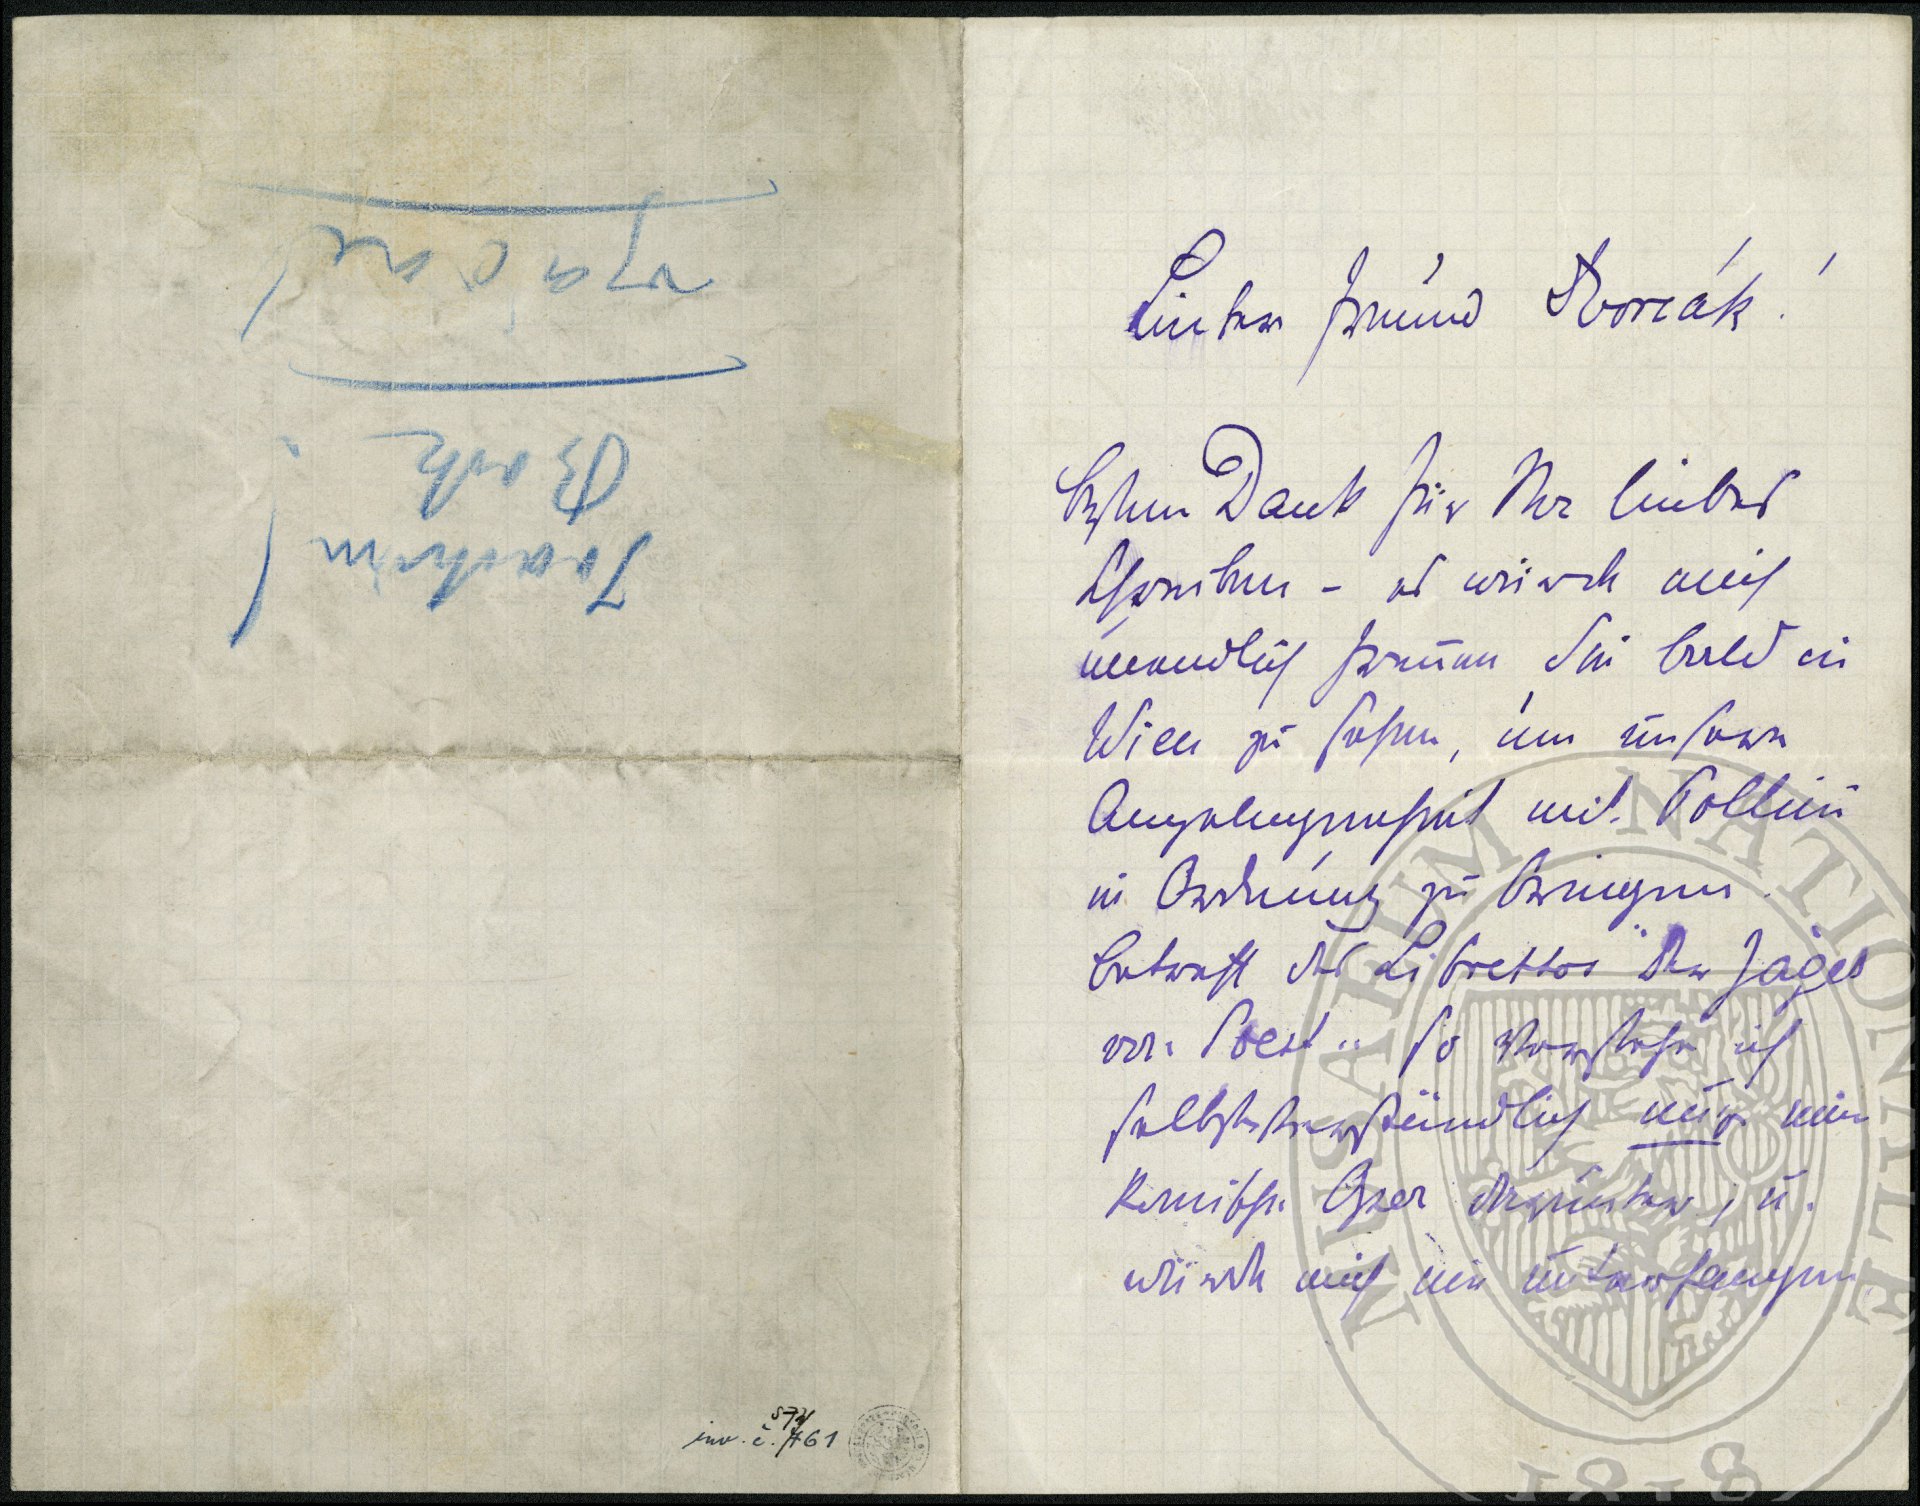 Lieber Freund Dvorák!
Besten Dank für Ihr liebes
Schreiben – es würde mich
unendlich freuen Sie bald in
Wien zu sehen, um unsere
Angelegenheit mit Pollini
in Ordnung zu bringen.
Entwurf des Librettos "Der Jäger
von Soest" so verstehe ich
selbstverständlich nur eine
komische Oper darunter, u.
würde mich nie unterfangen
Joachim
Bach
inv. č. 1461
MUSAEUM NATIONALE
1818